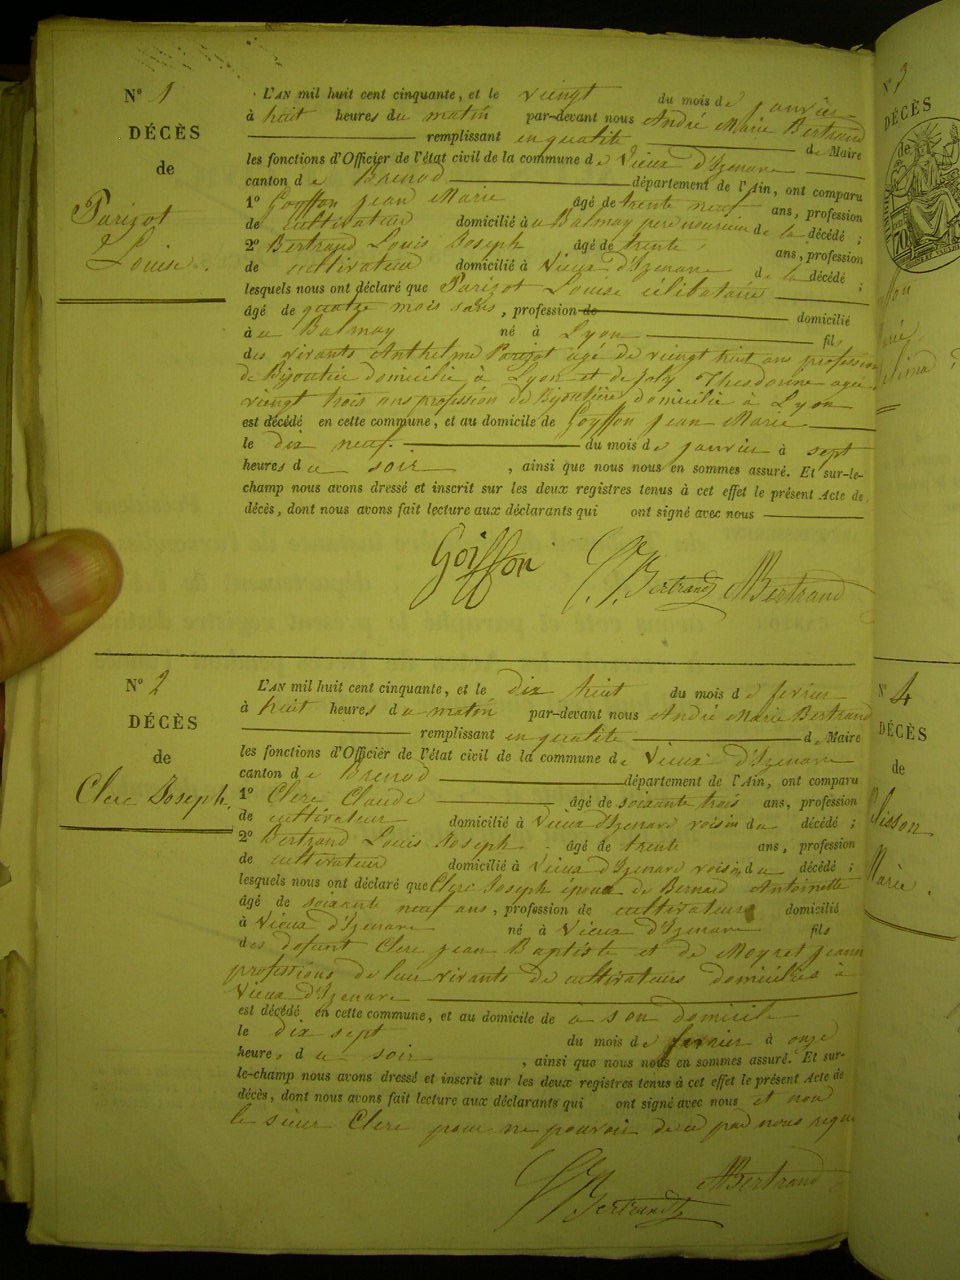 N° 1
DÉCÈS
de
Parizot
Louise.
L'AN mil huit cent cinquante, et le vieingt du mois de janvier
à huit heures du matin par-devant nous André Marie Bertrand
remplissant en qualité de Maire
les fonctions d'Officier de l'état civil de la commune de Vieux d'Izenave
canton de Brenod département de l'Ain, ont comparu
1° Goyffon jean Marie âgé de trente neuf ans, profession
de cultivateur domicilié à a Balmay pere nouricier de la décédé ;
2° Bertrand Louis Joseph âgé de trente ans, profession
de cultivateur domicilié à Vieux d'Izenave de la décédé ;
lesquels nous ont déclaré que Parizot Louise célibataire
âgé de quatre mois , profession de domicilié
à a Balmay né à Lyon fils
des vivants Anthelme Parizot agé de vieingt huit ans profession
de Bijoutier domicilié à Lyon et de Joly Théodorine agée
vieingt trois ans profession de Bijoutière domicilié à Lyon
est décédé en cette commune, et au domicile de Goyffon jean Marie
le dix neuf. du mois de janvier à sept
heures du soir , ainsi que nous nous en sommes assuré. Et sur-le-
champ nous avons dressé et inscrit sur les deux registres tenus à cet effet le présent Acte de
décès, dont nous avons fait lecture aux déclarants qui ont signé avec nous
Goiffon Bertrand Bertrand
N° 2
DÉCÈS
de
Clerc Joseph.
L'AN mil huit cent cinquante, et le dix huit du mois de fevrier
à huit heures du matin par-devant nous André Marie Bertrand
remplissant en qualité de Maire
les fonctions d'Officier de l'état civil de la commune de Vieux d'Izenave
canton de Brenod département de l'Ain, ont comparu
1° Clerc Claude âgé de soixante trois ans, profession
de cultivateur domicilié à Vieux d'Izenave voisin du décédé ;
2° Bertrand Louis Joseph âgé de trente ans, profession
de cultivateur domicilié à Vieux d'Izenave voisin du décédé ;
lesquels nous ont déclaré que Clerc Joseph époux de Bernard Antoinette
âgé de soixante neuf ans, profession de cultivateur domicilié
à Vieux d'Izenave né à Vieux d'Izenave fils
des defunt Clerc jean Baptiste et de Moyret jeann
professions de leur vivants de cultivateurs domiciliés à
Vieux d'Izenave
est décédé en cette commune, et au domicile de a son domicile
le dix sept du mois de fevrier à onze
heures du soir , ainsi que nous nous en sommes assuré. Et sur-
le-champ nous avons dressé et inscrit sur les deux registres tenus à cet effet le présent Acte de
décès, dont nous avons fait lecture aux déclarants qui ont signé avec nous et non
le sieur Clerc pour ne pouvoir de ce par nous requi
Bertrand Bertrand
N° 3
DÉCÈS
de
N° 4
DÉCÈS
de
Marie.